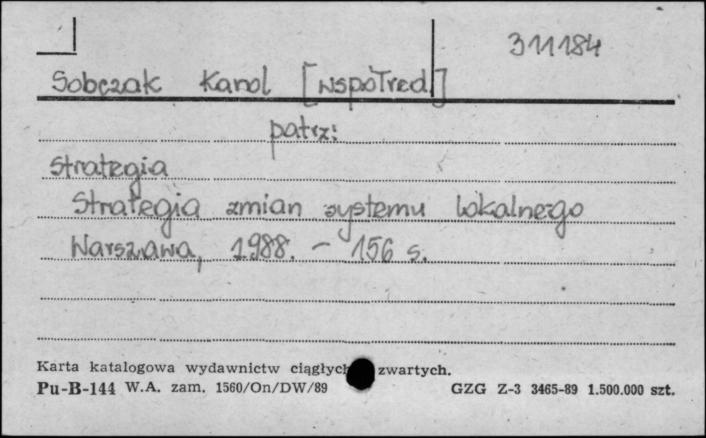 311184
Sobczak Karol [współred.]
patrz:
Strategia
Strategia zmian systemu lokalnego
Warszawa, 1988. - 156 s.
Karta katalogowa wydawnictw ciągłych zwartych.
Pu-B-144 W.A. zam. 1560/On/DW/89 GZG Z-3 3465-89 1.500.000 szt.